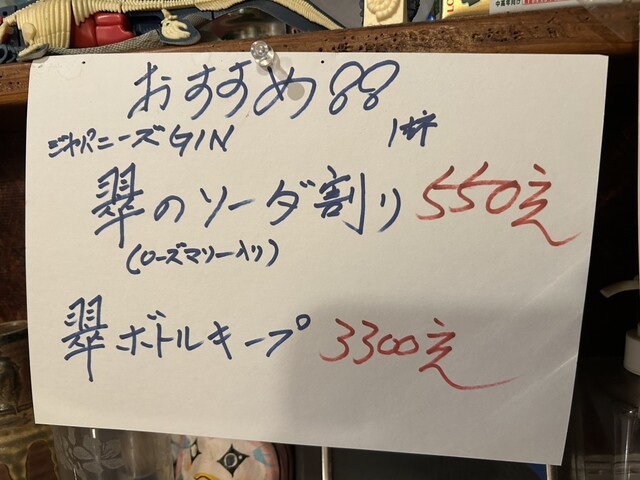 おすすめ!!
ジャパニーズGIN 1杯
翠のソーダ割り 550え
(ローズマリー入り)
翠ボトルキープ 3300え